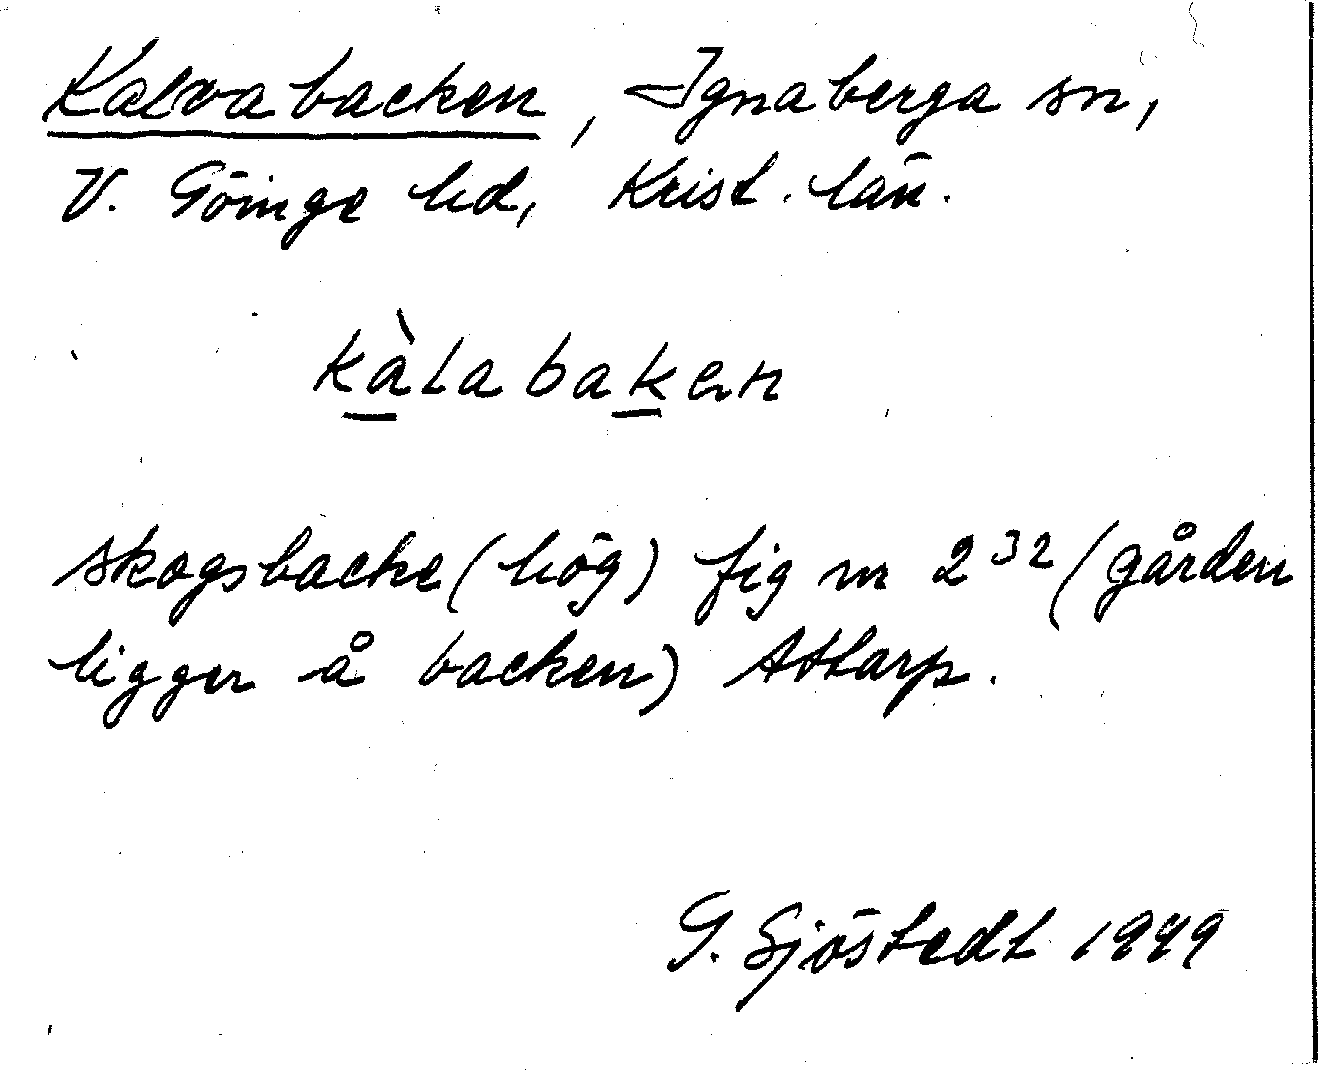 Kalvabacken, Ignaberga sn,
V. Göinge hd, Krist. län.
kàlabaken
skogsbacke (hög) fig m 2³² (gården
ligger å backen) Attarp.
G. Sjöstedt 1949